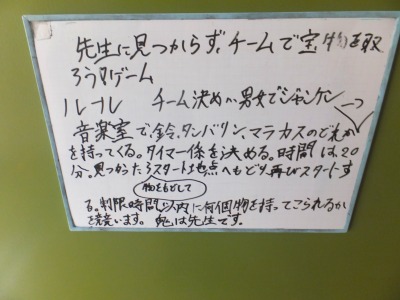 先生に見つからず、チームで宝物を取
ろう!ゲーム
ルール チーム決め…男女でジャンケン
音楽室で、鈴、タンバリン、マラカスのどれか一つ
を持ってくる。タイマー係を決める。時間は、20
分。見つかったらスタート地点へもどり、再びスタートす
物をもどして
る。制限時間以内に何個物を持ってこられるか
を競います。鬼は先生です。